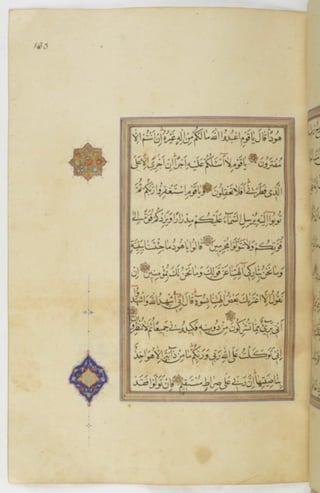 هودا قال يا قوم اعبدوا الله ما لكم من اله غيره ان انتم الا
مفترون يا قوم لا اسئلكم عليه اجرا ان اجري الا على
الذي فطرني افلا تعقلون ويا قوم استغفروا ربكم ثم
توبوا اليه يرسل السماء عليكم مدرارا ويزدكم قوة الى
قوتكم ولا تتولوا مجرمين قالوا يا هود ما جئتنا ببينة
وما نحن بتاركي الهتنا عن قولك وما نحن لك بمؤمنين ان
نقول الا اعتريك بعض الهتنا بسوء قال اني اشهد الله واشهدوا
اني بريء مما تشركون من دونه فكيدوني جميعا ثم لا تنظرون
اني توكلت على الله ربي وربكم ما من دابة الا هو اخذ
بناصيتها ان ربي على صراط مستقيم فان تولوا فقد